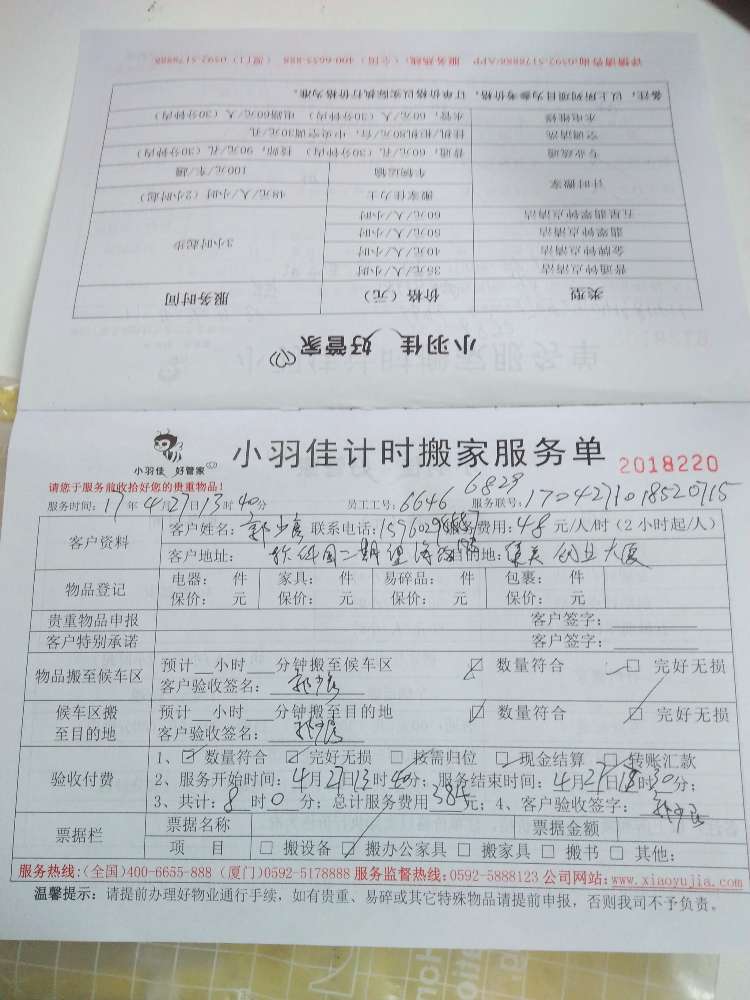 详情请咨询:0592-5178888/APP 服务热线:(全国)400-6655-888 (厦门)0592-5178888
小羽佳 好管家
类型 价格(元) 服务时间
普通钟点清洁 35元/人/小时 3小时起步
金牌钟点清洁 40元/人/小时
翡翠钟点清洁 50元/人/小时
五星翡翠钟点清洁 60元/人/小时
计时搬家 搬家佳力士 48元/人/小时(2小时起)
车辆运输 100元/车/趟
专业疏通 普通,60元/孔(30分钟内) 技师,90元/孔(30分钟内)
空调清洗 挂机/柜机80元/台,中央空调30元/孔
水电维修 水管,60元/人(30分钟内) 电路60元/人(30分钟内)
备注:以上所列项目为参考价格,订单价格以实际执行价格为准。
小羽佳 好管家
小羽佳计时搬家服务单
2018220
请您于服务前收拾好您的贵重物品!
服务时间:17年4月27日13时40分 员工工号:6646 6823 服务联号:1704271018520715
客户资料 客户姓名: 联系电话: 服务费用:48元/人/时(2小时起/人)
客户地址: 软件园二期望海 目的地: 创业大厦
物品登记 电器: 件 家具: 件 易碎品: 件 包裹: 件
保价: 元 保价: 元 保价: 元 保价: 元
贵重物品申报 客户签字:
客户特别承诺 客户签字:
物品搬至候车区 预计 小时 分钟搬至候车区 数量符合 完好无损
客户验收签名:
候车区搬至目的地 预计 小时 分钟搬至目的地 数量符合 完好无损
客户验收签名:
验收付费 1、数量符合 完好无损 按需归位 现金结算 转账汇款
2、服务开始时间:4月27日13时40分; 服务结束时间:4月27日 时30分;
3、共计:8时0分;总计服务费用384元;4、客户验收签字:
票据栏 票据名称 票据金额
项 目 搬设备 搬办公家具 搬家具 搬书 其他:
服务热线:(全国)400-6655-888 (厦门)0592-5178888 服务监督热线:0592-5888123 公司网站:www.xiaoyujia.com
温馨提示:请提前办理好物业通行手续,如有贵重、易碎或其它特殊物品请提前申报,否则我司不予负责。